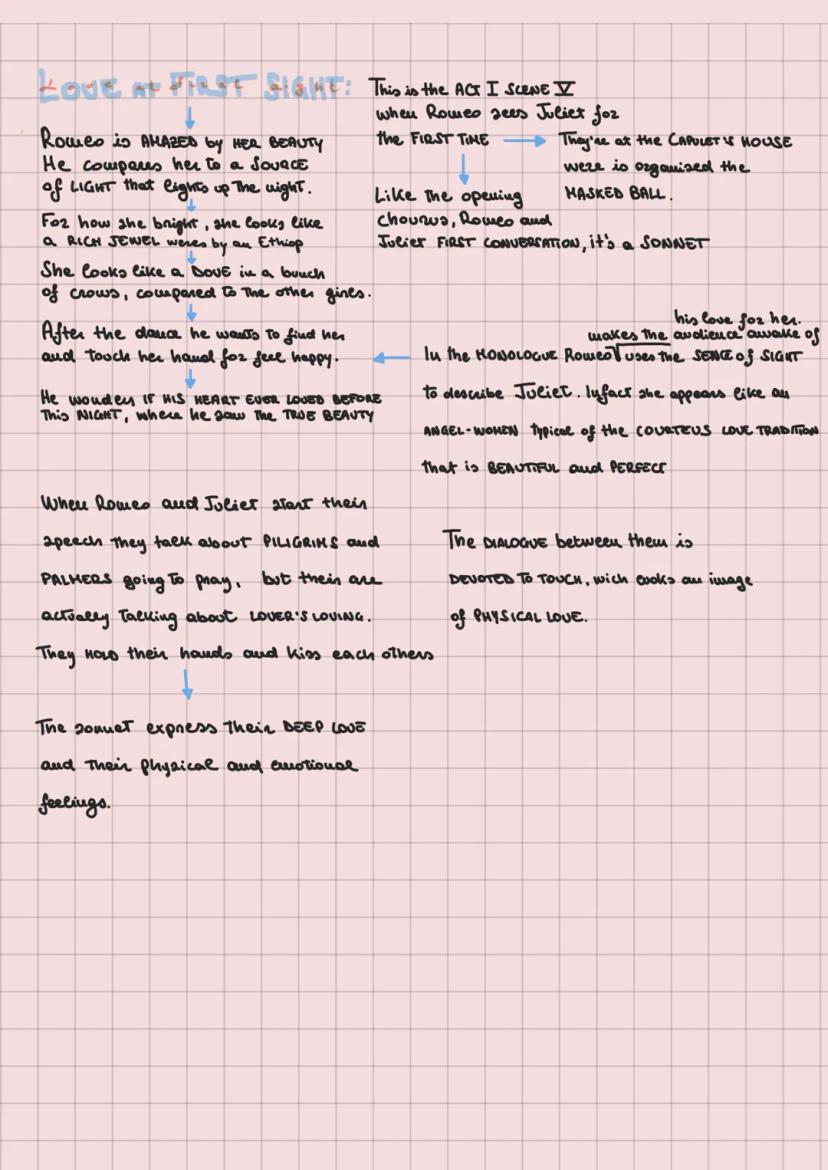 LOVE AT FIRST SIGHT:
This is the ACT I SCENE V
when Romeo sees Juliet for
the FIRST TIME → They're at the CAPULET'S HOUSE
were is organised the
MASKED BALL.
Like the opening
chourus, Romeo and
Juliet FIRST CONVERSATION, it's a SONNET
Romeo is AMAZED by HER BEAUTY
He compares her to a SOURCE
of LIGHT that lights up the night.
For how she bright, she looks like
a RICH JEWEL weres by an Ethiop
She looks like a DOVE in a bunch
of crows, compared to the other girls.
After the dance he wants to find her
and touch her hand for feel happy.
He wonders IF HIS HEART EVER LOVED BEFORE
This NIGHT, where he saw the TRUE BEAUTY
his love for her.
makes the audience awake of
In the MONOLOGUE Romeo uses the SENSE of SIGHT
to describe Juliet. Infact she appears like an
ANGEL-WOMEN typical of the COURTEUS LOVE TRADITION
that is BEAUTIFUL and PERFECT
When Romeo and Juliet start their
speech they talk about PILIGRIMS and
PALMERS going to pray, but their are
actually talking about LOVER'S LOVING.
They HOLD their hands and kiss each others
The DIALOGUE between them is
DEVOTED TO TOUCH, wich an image
of PHYSICAL LOVE.
The sonnet express their DEEP LOVE
and their physical and emotional
feelings.